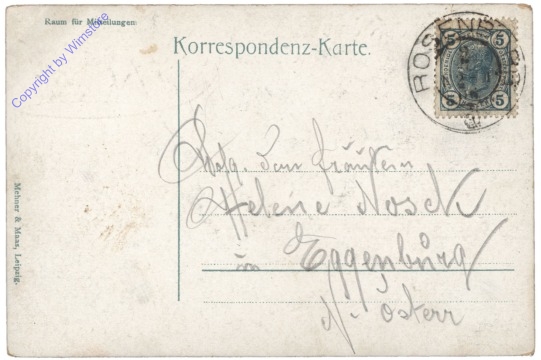 Raum für Mitteilungen:
Copyright by Wimstore
Korrespondenz-Karte.
ROSEN
5 5
5 5
Helene Nosck
in Eggenburg
N. Österr
Mehner & Maas, Leipzig.